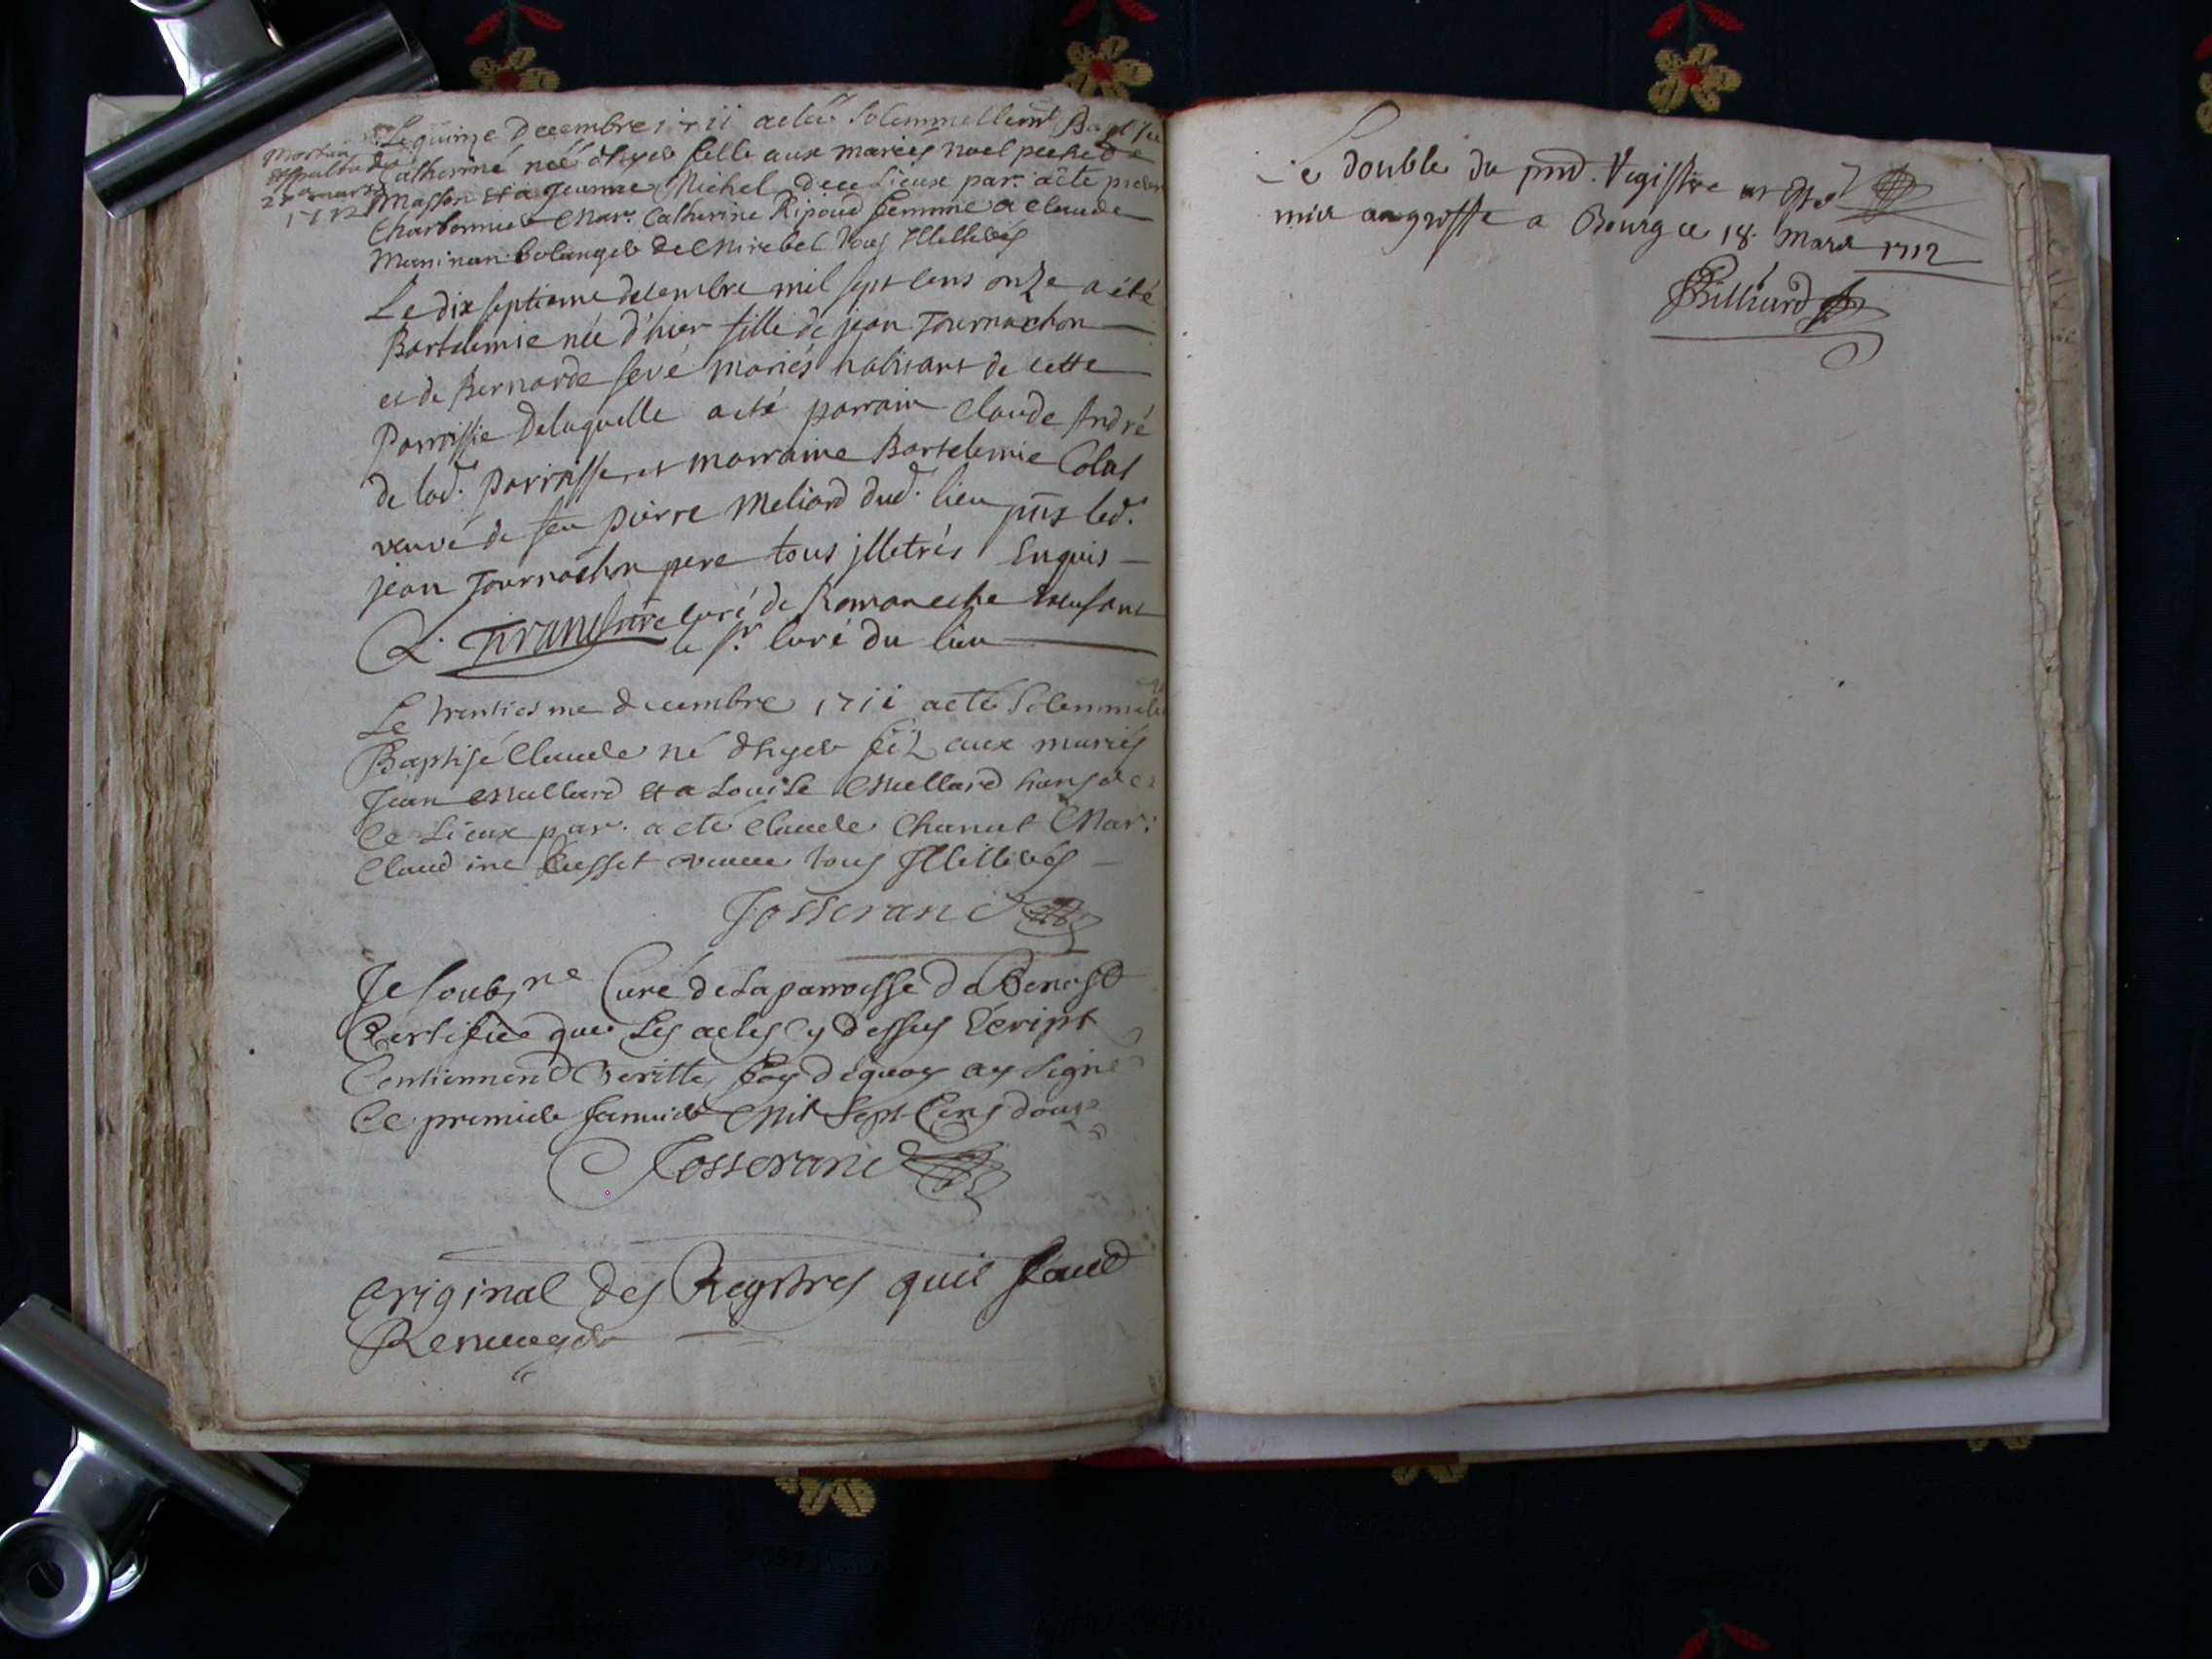 Le quinze Decembre 1711 a etée Solemnellemt Baptisee
Catherine née d'hyer fille aux mariés noel
Masson et a Jeanne Michel dece Lieux par. a ete
Charbonnier Mar. Catherine Ripoud femme a Claude
Maninan bolanger de Mirebel tous Illettrés
mars
1712
Le dix septieme decembre mil sept cens onze a été
Bartelemie née d'hier fille de jean Tournachon
et de Bernarde sevé mariés habitans de cette
Parroisse Delaquelle a été parrain Claude André
de lad. parroisse et marraine Bartelemie Colas
veuve de feu pierre Meliard dud. lieu pñs led.
jean Tournachon pere tous jlletrés Enquis
L. Tirand prtre curé de Romaneche
le sr. curé du lieu
Le trentiesme decembre 1711 a eté Solemnele
Baptisé Claude né d'hyer filz aux mariés
Jean Meillard et a Louise Meillard
Ce Lieux par. a eté Claude Chanut Mar:
Claudine Cusset veuve tous Illettrés
Josserand
Je Soubsne Curé de La parroisse de Benost
Certifie que Les actes cy dessus Ecript
Contiennend Veritté foy dequoy ay Signé
Ce premier Janvier Mil Sept Cens douze
Josserand
Original des Regstres quil faud
Le double du pnd. Registre
mis a a Bourg ce 18. Mars 1712
Billiard